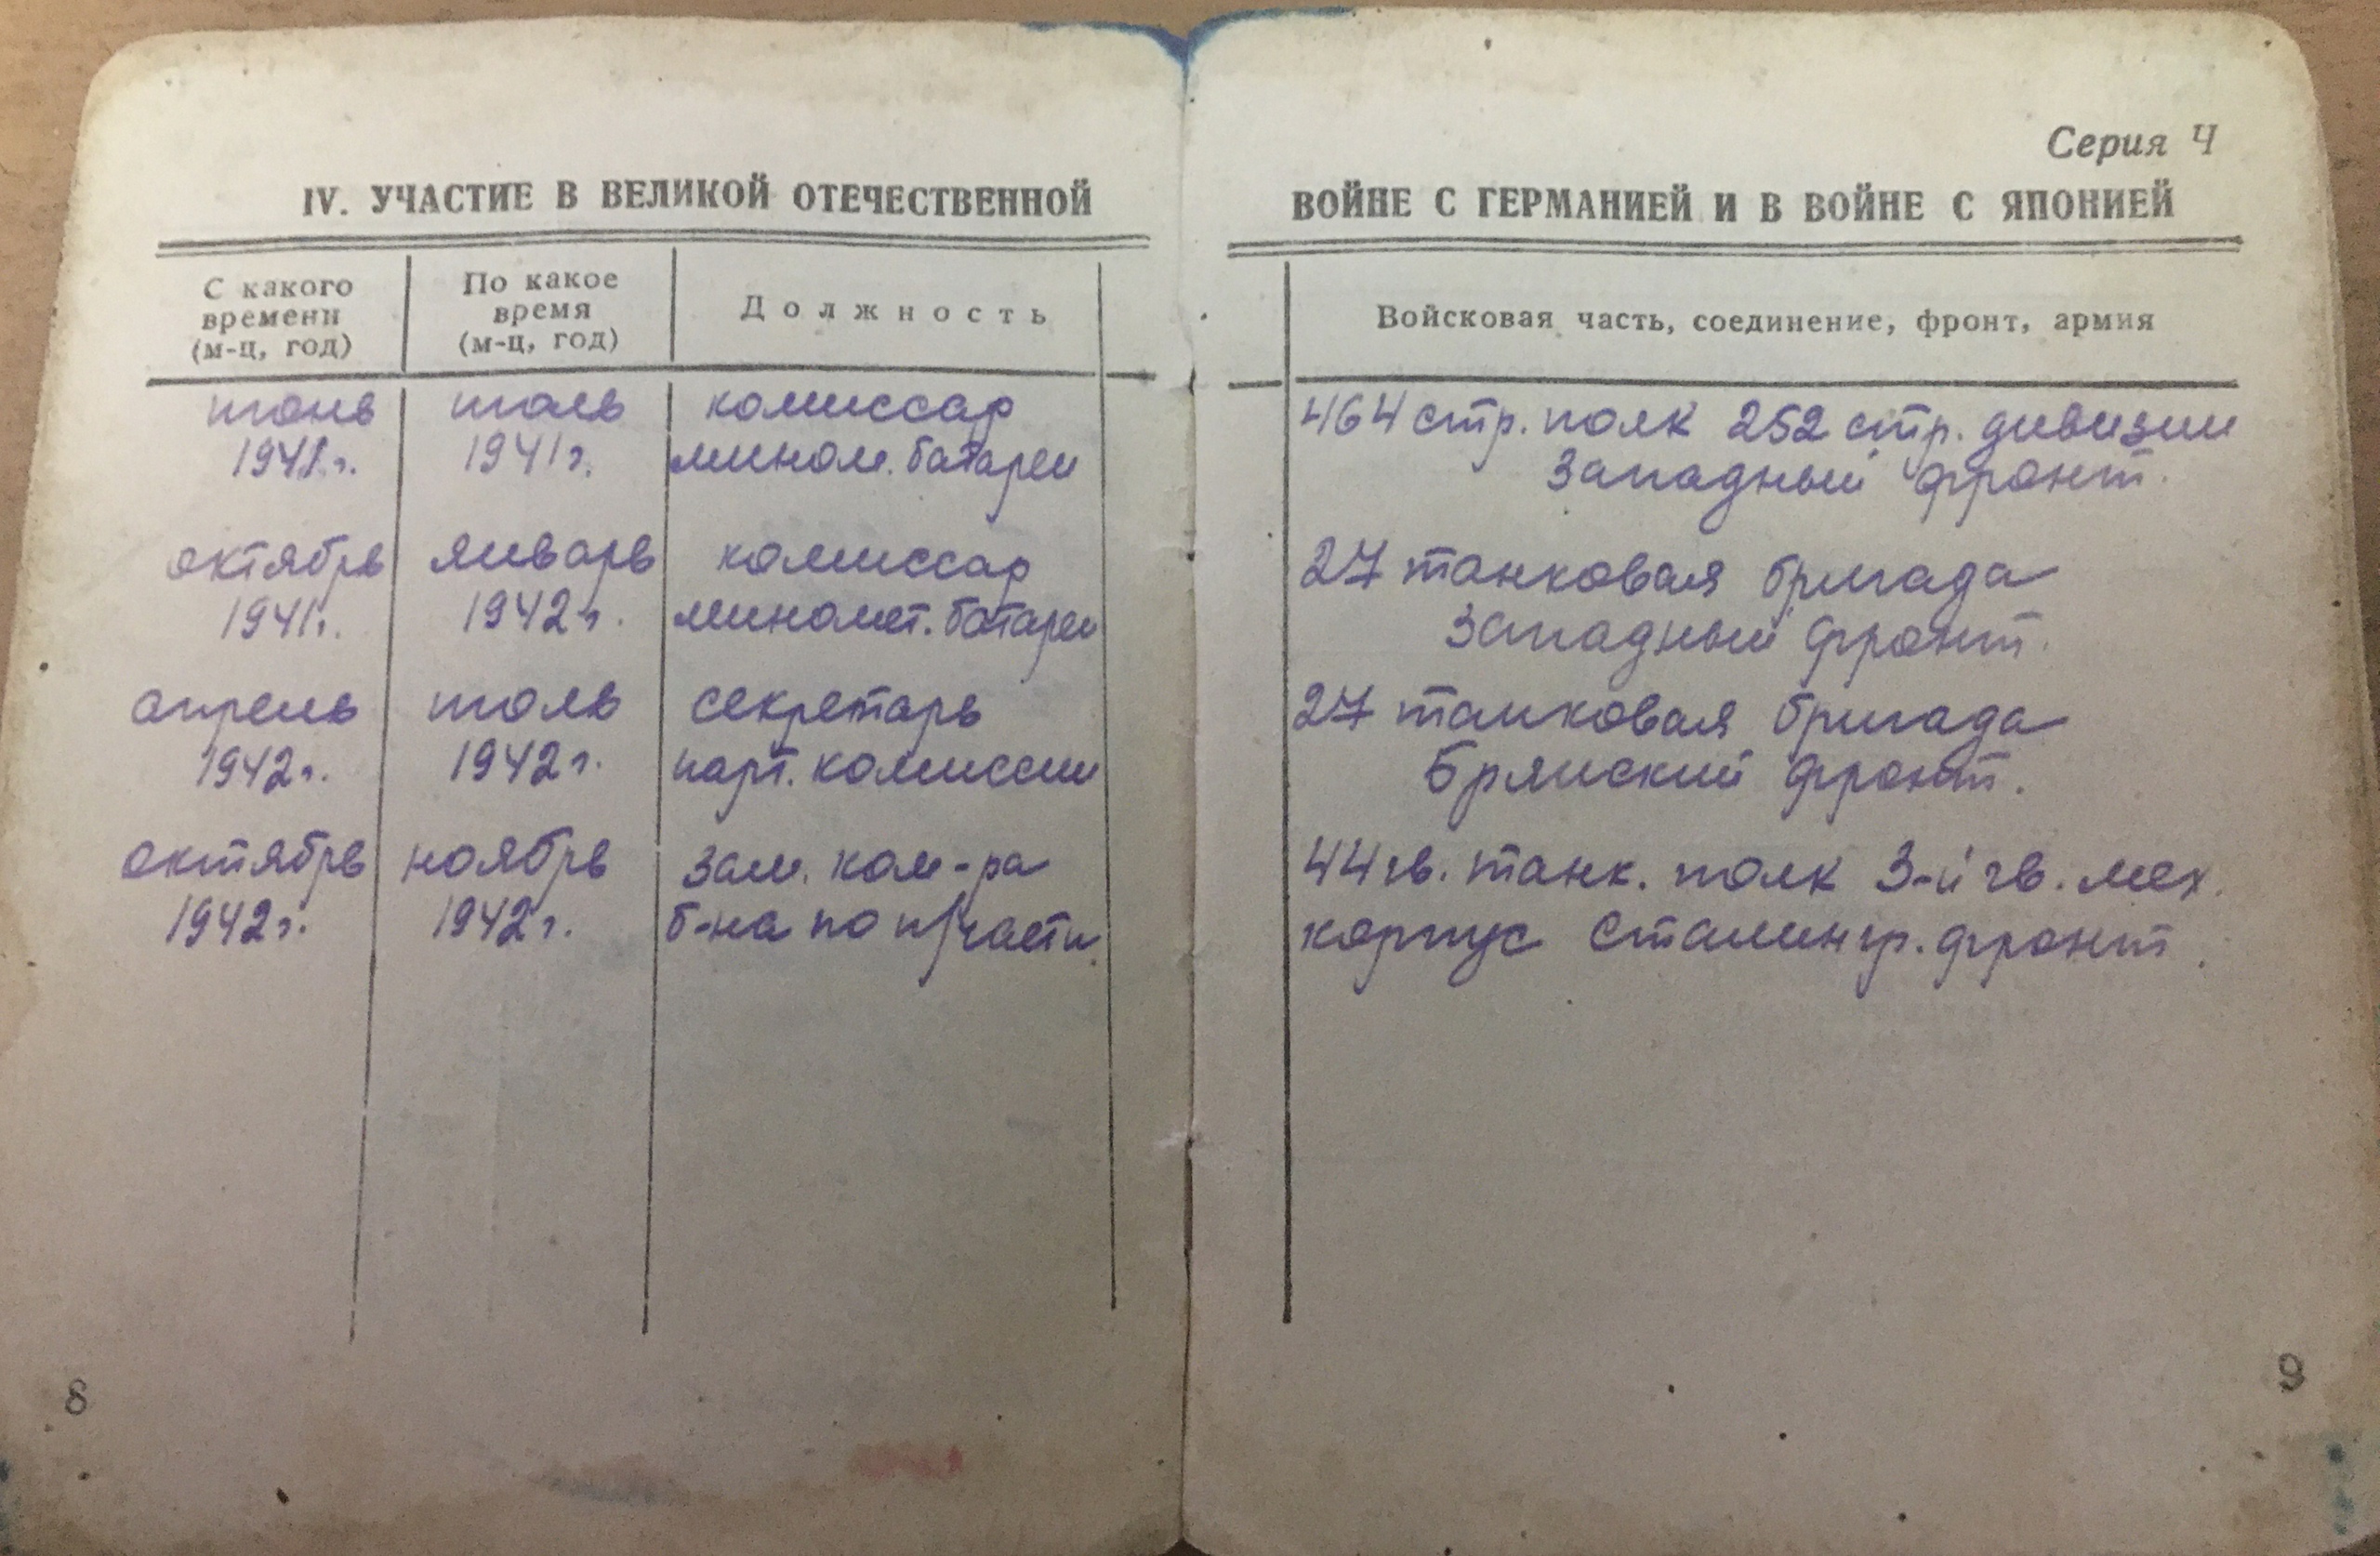 Серия Ч
IV. УЧАСТИЕ В ВЕЛИКОЙ ОТЕЧЕСТВЕННОЙ
ВОЙНЕ С ГЕРМАНИЕЙ И В ВОЙНЕ С ЯПОНИЕЙ
С какого
времени
(м-ц, год)
По какое
время
(м-ц, год)
Должность
Войсковая часть, соединение, фронт, армия
июнь
1941г.
июль
1941г.
комиссар
мином. батареи
464 стр. полк 252 стр. дивизии
Западный фронт.
октябрь
1941г.
январь
1942г.
комиссар
миномет. батареи
27 танковая бригада
Западный фронт.
апрель
1942г.
июль
1942г.
секретарь
парт. комиссии
27 танковая бригада
Брянский фронт.
октябрь
1942г.
ноябрь
1942г.
зам. ком-ра
б-на по п/части.
44 гв. танк. полк 3-й гв. мех.
корпус Сталингр. фронт.
8
9